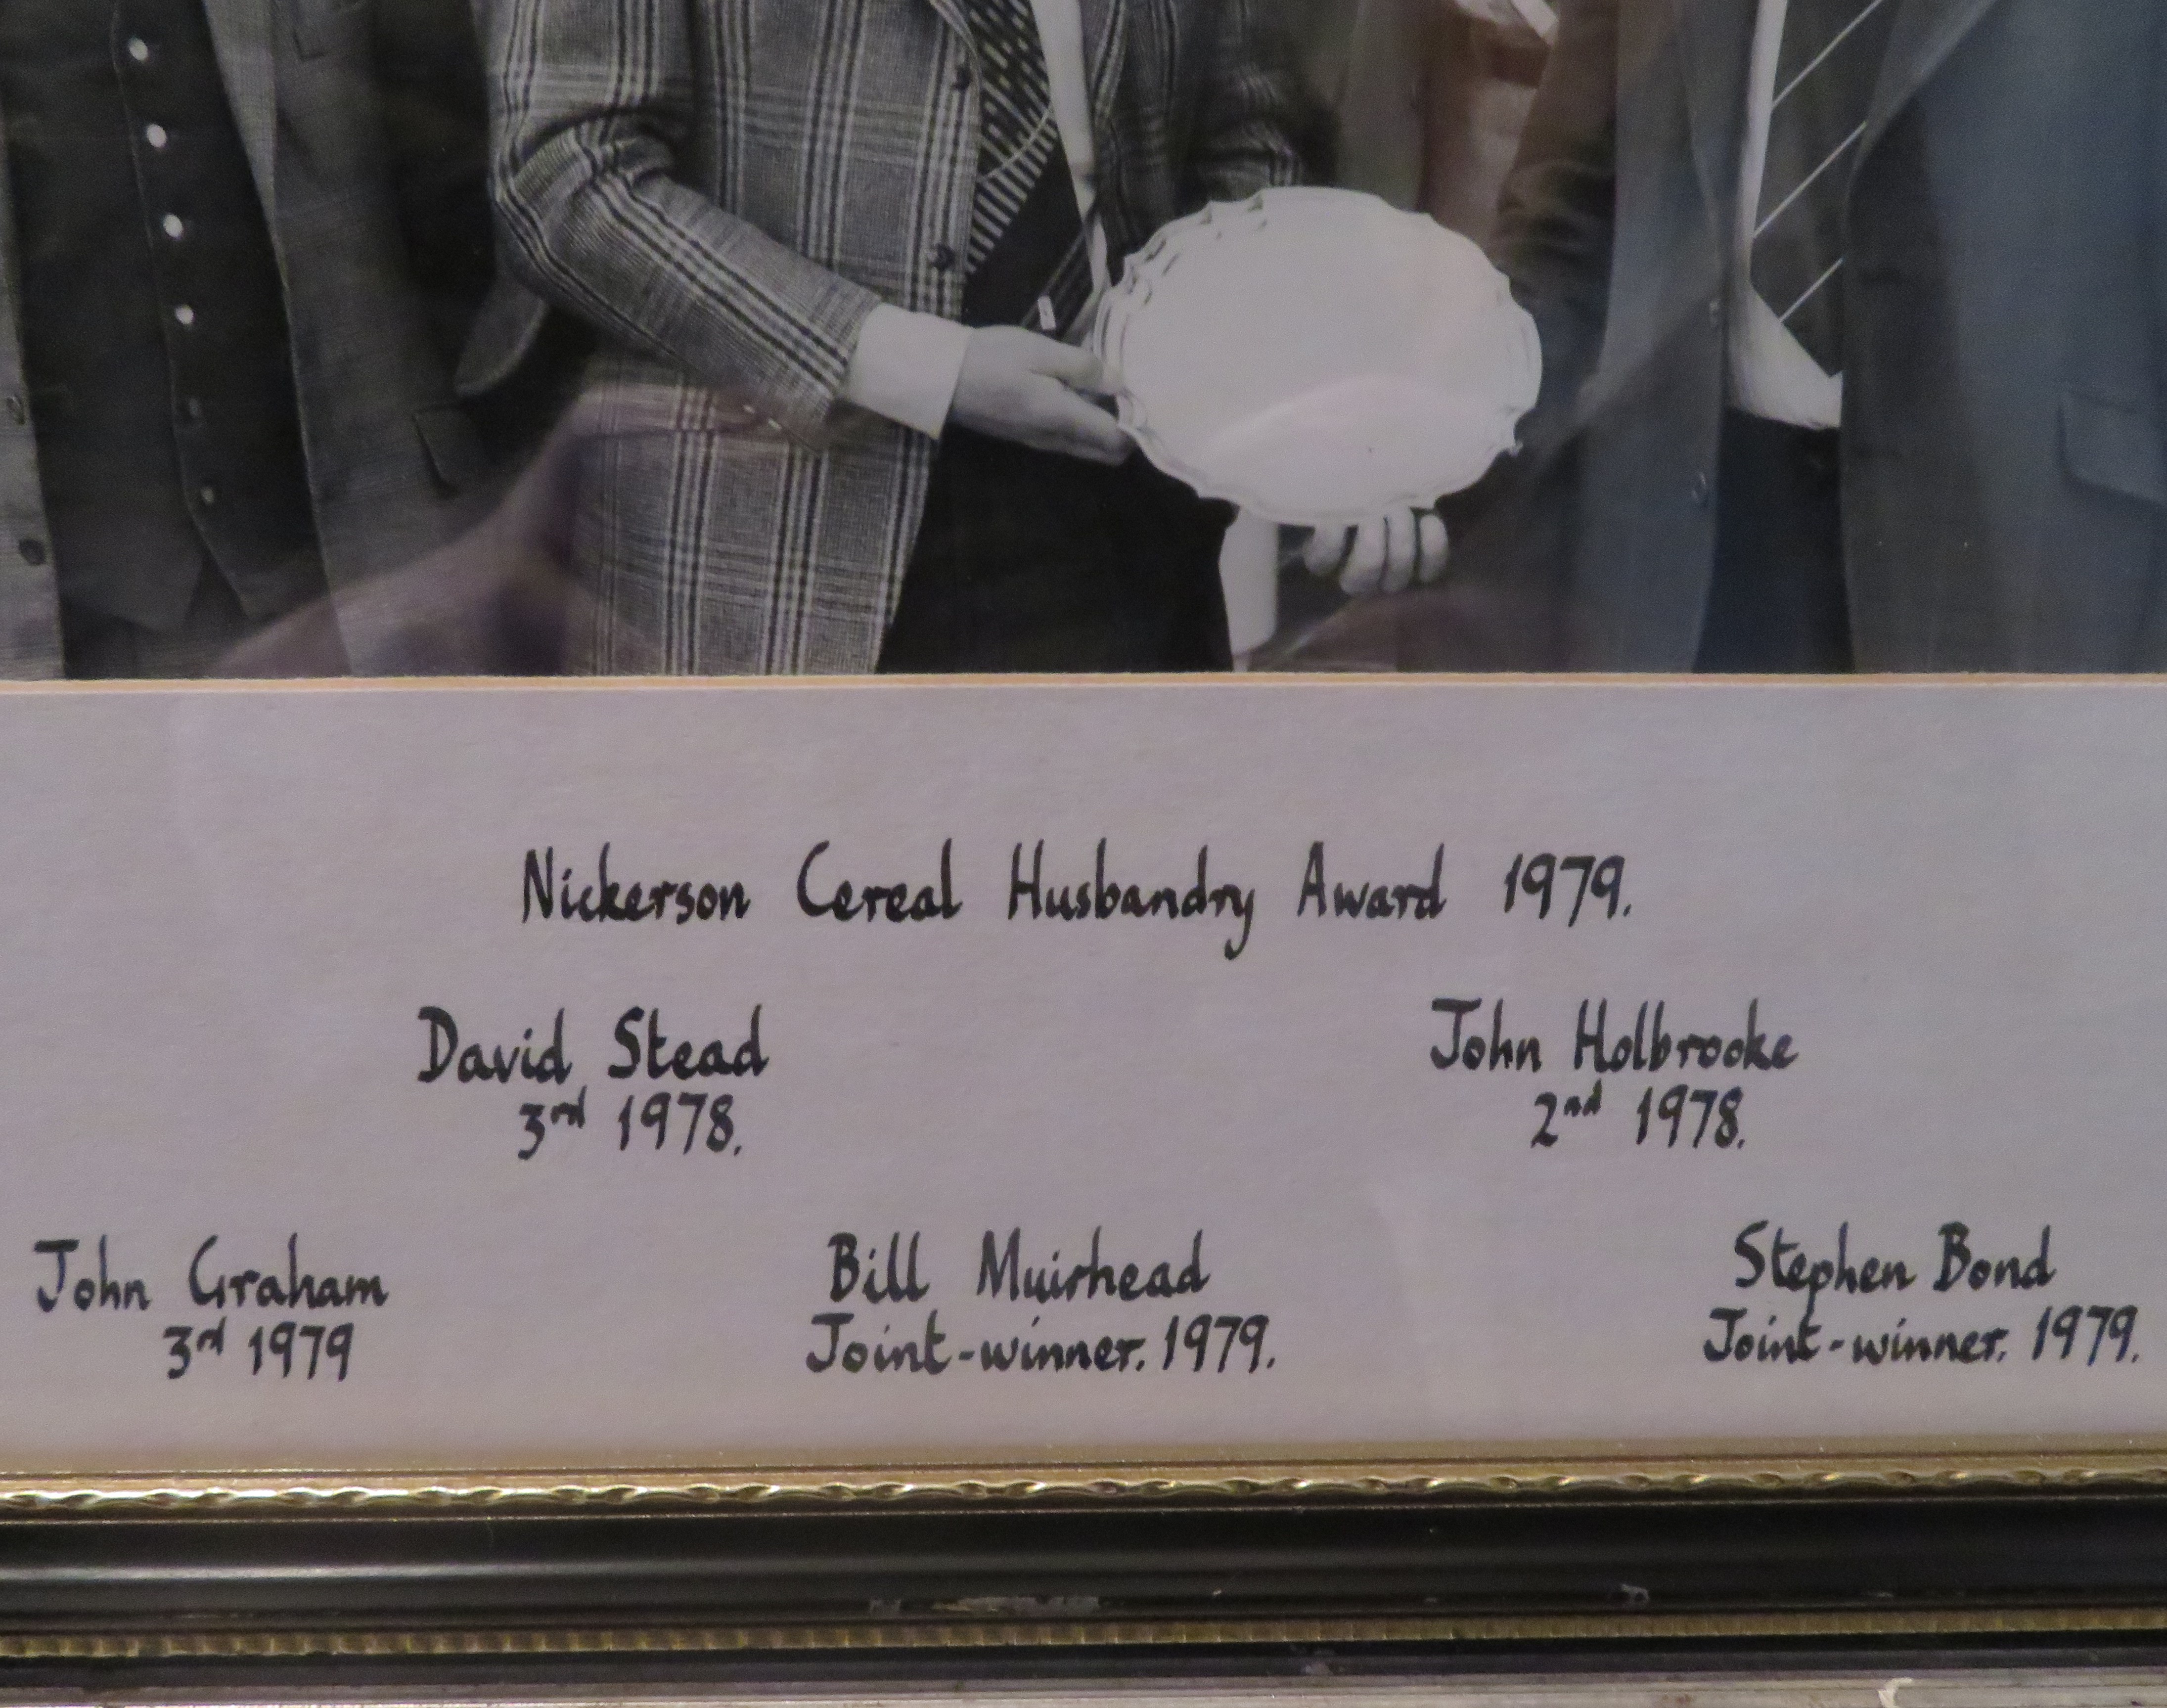 Nickerson Cereal Husbandry Award 1979.
David Stead
3rd 1978.
John Holbrooke
2nd 1978.
John Graham
3rd 1979
Bill Muirhead
Joint-winner. 1979.
Stephen Bond
Joint-winner. 1979.